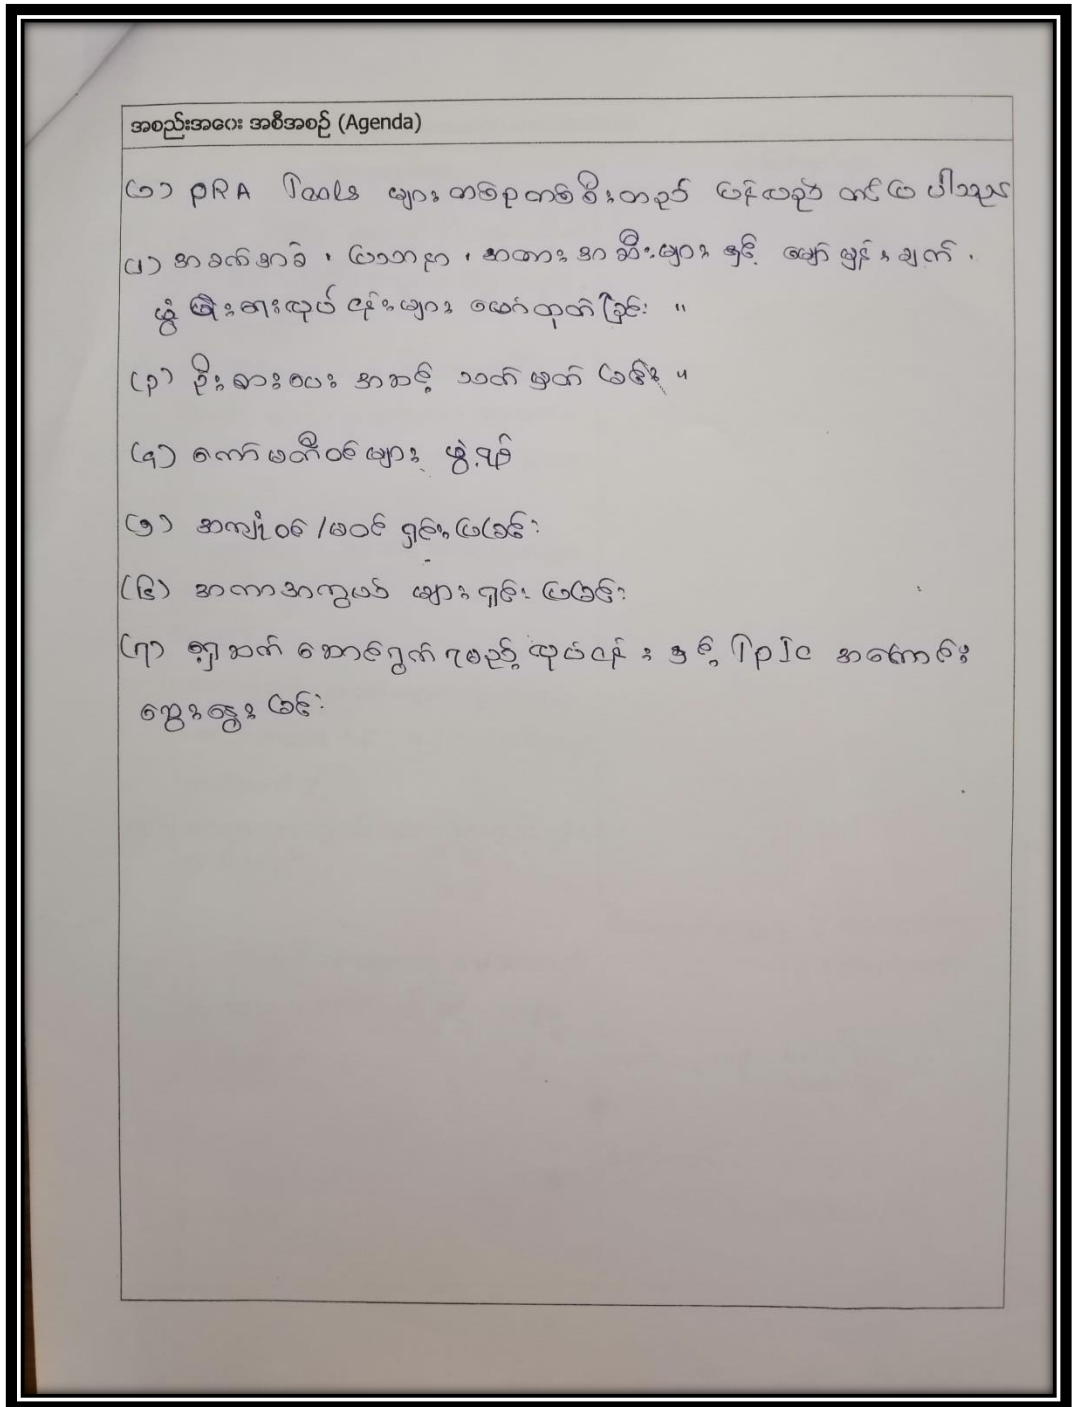 အစည်းအဝေး အစီအစဉ် (Agenda)
(၁) PRA Tools များ တစ်ခုတစ်စီးတည်း ပြန်လည် တင်ပြ ပါသည်
(၂) အခက်အခဲ ၊ ပြဿနာ ၊ အတားအဆီးများ နှင့် မျှော်မှန်းချက် ၊
ဖွံ့ဖြိုးရေးလုပ်ငန်းများ ဖော်ထုတ်ခြင်း ။
(၃) ဦးစားပေး အဆင့် သတ်မှတ် ခြင်း ။
(၄) ကော်မတီဝင်များ ဖွဲ့ရန်
(၅) အကျုံးဝင်/မဝင် ရှင်းပြခြင်း
(၆) အကာအကွယ် များရှင်း ပြခြင်း
(၇) ရှေ့ဆက် ဆောင်ရွက် ရမည့် လုပ်ငန်း နှင့် TPIC အကြောင်း
ဆွေးနွေး ခြင်း